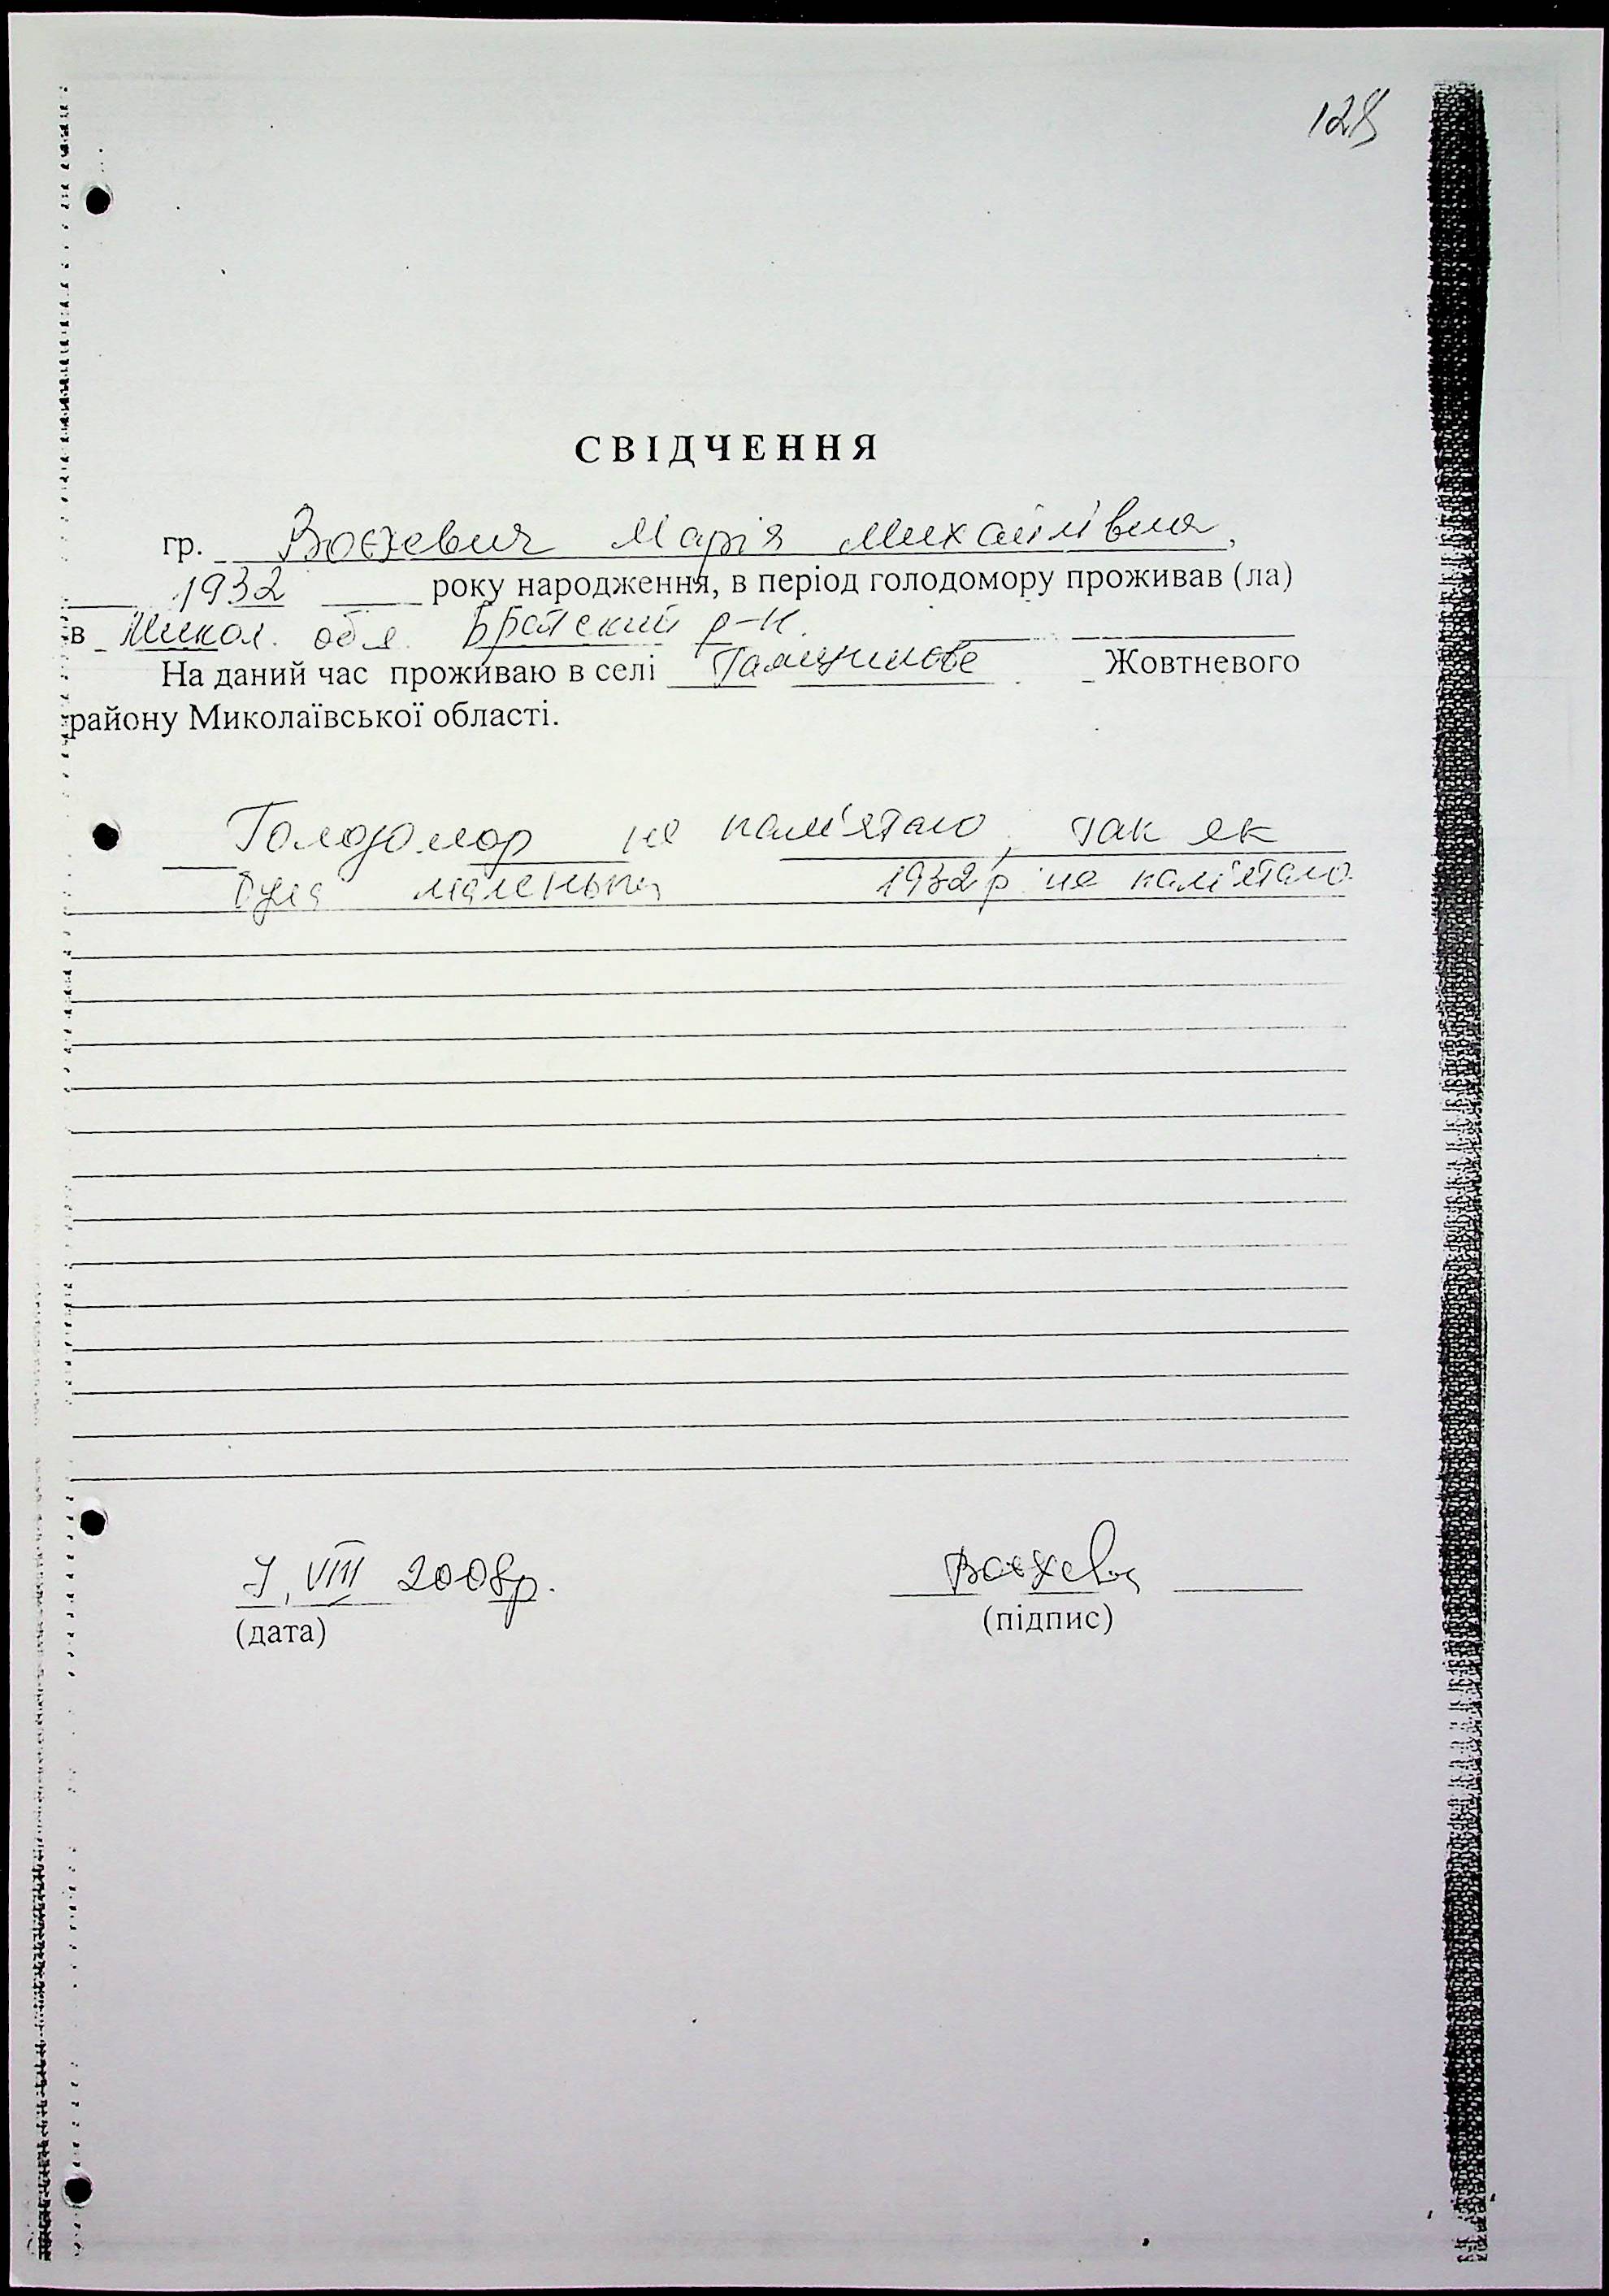 128
СВІДЧЕННЯ
гр. Воєжевич Марія Михайлівна,
1932 року народження, в період голодомору проживав (ла)
в Микол. обл. Братский р-н.
На даний час проживаю в селі Галицинове Жовтневого
району Миколаївської області.
Голодомор не пам'ятаю, так як
була маленька 1932 р не пам'ятаю.
VIII 2008р.
(дата)
(підпис)